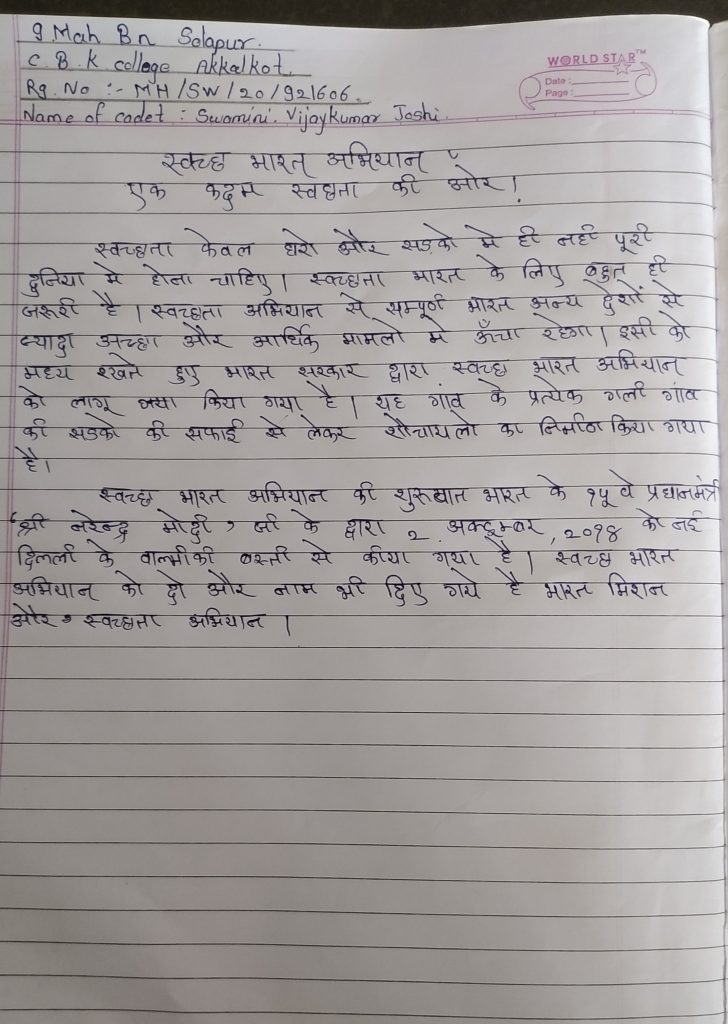 9 Mah Bn Solapur.
C. B. K college Akkalkot.
Rg. No :- MH/SW/20/921606.
Name of cadet : Swamini. Vijaykumar Joshi.
WORLD STAR™
Date :
Page :
स्वच्छ भारत अभियान
एक कदम स्वछता की ओर !
स्वच्छता केवल घरो और सड़को मे ही नही पूरी
दुनिया मे होना चाहिए। स्वच्छता भारत के लिए बहुत ही
जरूरी है। स्वच्छता अभियान से सम्पूर्ण भारत अन्य देशों से
ज्यादा अच्छा और आर्थिक मामलो मे ऊँचा रहेगा। इसी को
मध्य रखते हुए भारत सरकार द्वारा स्वच्छ भारत अभियान
को लागू किया गया है। यह गांव के प्रत्येक गली गांव
की सडको की सफाई से लेकर शौचायलो का निर्माण किया गया
है।
स्वच्छ भारत अभियान की शुरुआत भारत के १५ वे प्रधानमंत्री
'श्री नरेन्द्र मोदी' जी के द्वारा 2 अक्टूम्बर, २०१४ को नई
दिलली के वाल्मीकी बस्ती से कीया गया है। स्वच्छ भारत
अभियान को दो और नाम भी दिए गये है भारत मिशन
और स्वच्छता अभियान।